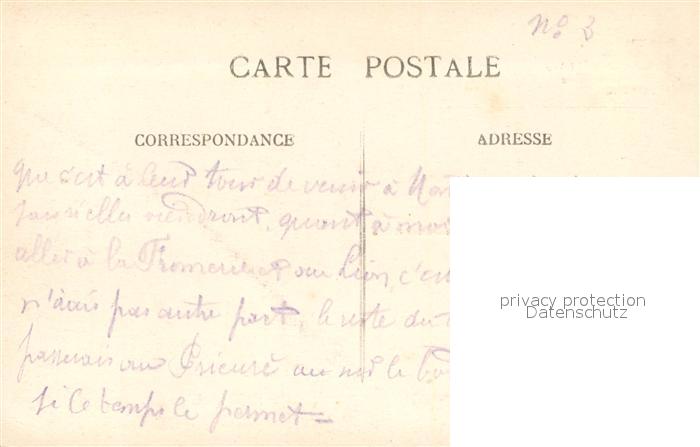 No 3
CARTE POSTALE
CORRESPONDANCE
ADRESSE
que c'est à leur tour de venir à
si elles viendront, quant à moi
aller à la ou c'est
n'irais pas autre part, le reste du
passerais au Prieuré ou sur le
si le temps le permet =
privacy protection
Datenschutz